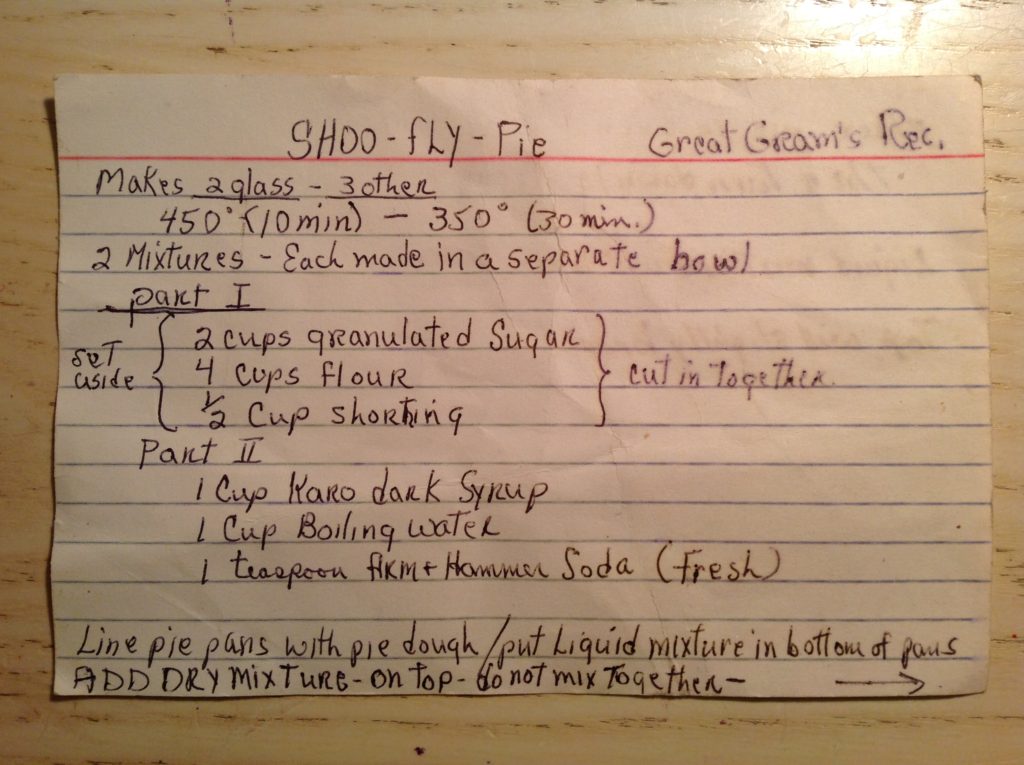 SHOO-fLY-Pie Great Gram's Rec.
Makes 2 glass - 3 other
450° (10 min) - 350° (30 min.)
2 Mixtures - Each made in a separate bowl
part I
2 cups granulated Sugar
set aside 4 cups flour cut in together.
1/2 Cup shortning
Part II
1 Cup Karo dark Syrup
1 Cup Boiling water
1 teaspoon Arm + Hammer Soda (fresh)
Line pie pans with pie dough/put Liquid mixture in bottom of pans
ADD DRY MIXTURE - on top - do not mix together - →